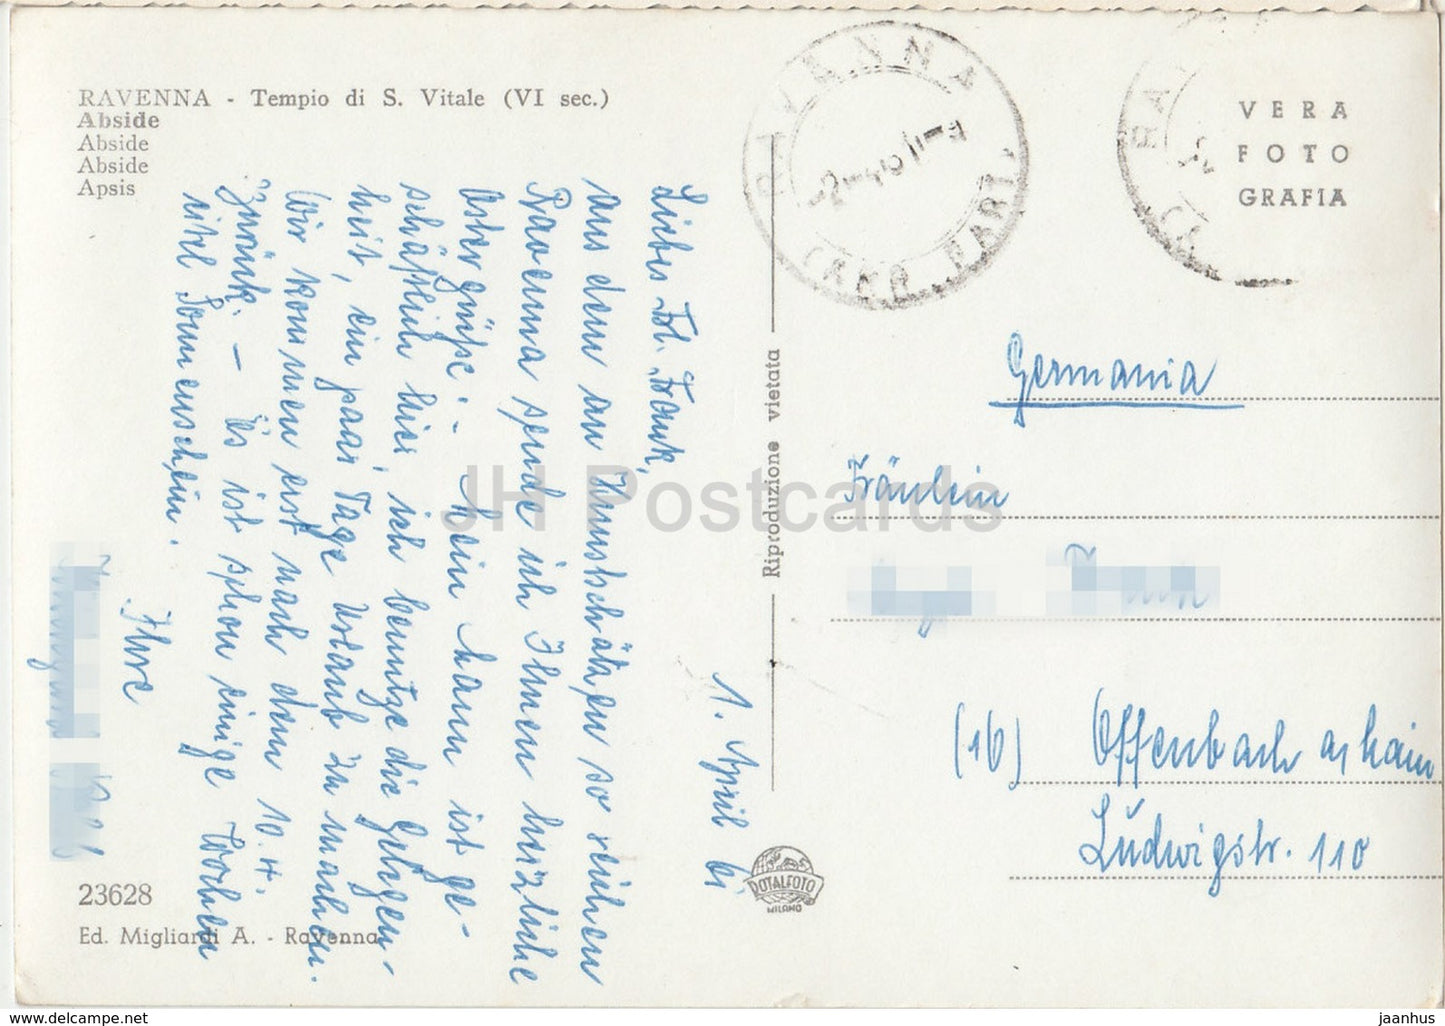 RAVENNA - Tempio di S. Vitale (VI sec.)
Abside
Abside
Abside
Apsis
1. April 61
Liebes Frl. Frank,
aus dem an Kunstschätzen so reichen
Ravenna sende ich Ihnen herzliche
Ostergrüße. - Mein Mann ist ge-
schäftlich hier, ich benutze die Gelegen-
heit, ein paar Tage Urlaub zu machen.
Wir kommen erst nach dem 10.4.
zurück. - Es ist schon einige Wochen
viel Sonnenschein.
Ihre
23628
Ed. Migliardi A. - Ravenna
Riproduzione vietata
ROTALFOTO
MILANO
RAVENNA
VERA
FOTO
GRAFIA
Germania
Fräulein
(16) Offenbach a/Main
Ludwigstr. 110
JH Postcards
www.delcampe.net
jaanhus